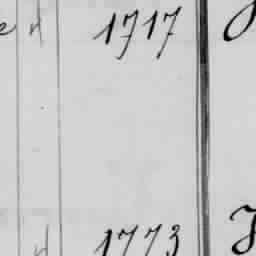 e d 1717
d 1773